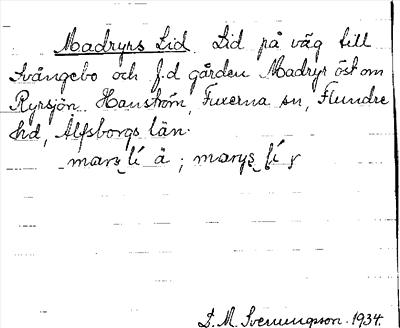 Madryrs Lid Lid på väg till
Svångebo och f.d gården Madryr öst om
Ryrsjön. Hanström, Fuxerna sn, Flundre
hd, Älfsborgs län.
D. M. Svenungsson. 1934.